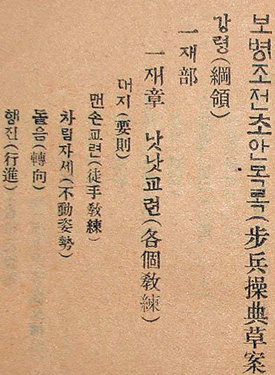 보병조전초안목록(步兵操典草案
강령(綱領)
一재部
一재章 낫낫교련(各個敎練)
대지(要則)
맨손교련(徒手敎練)
차림자세(不動姿勢)
돌음(轉向)
행진(行進)